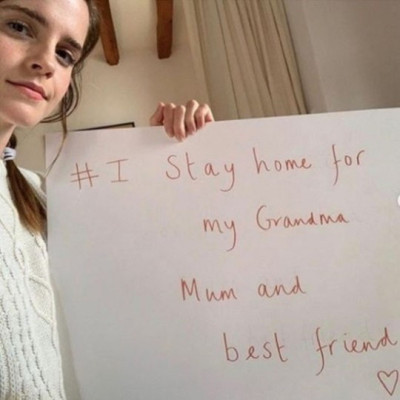 #I Stay home for
my Grandma
Mum and
best friend
♡